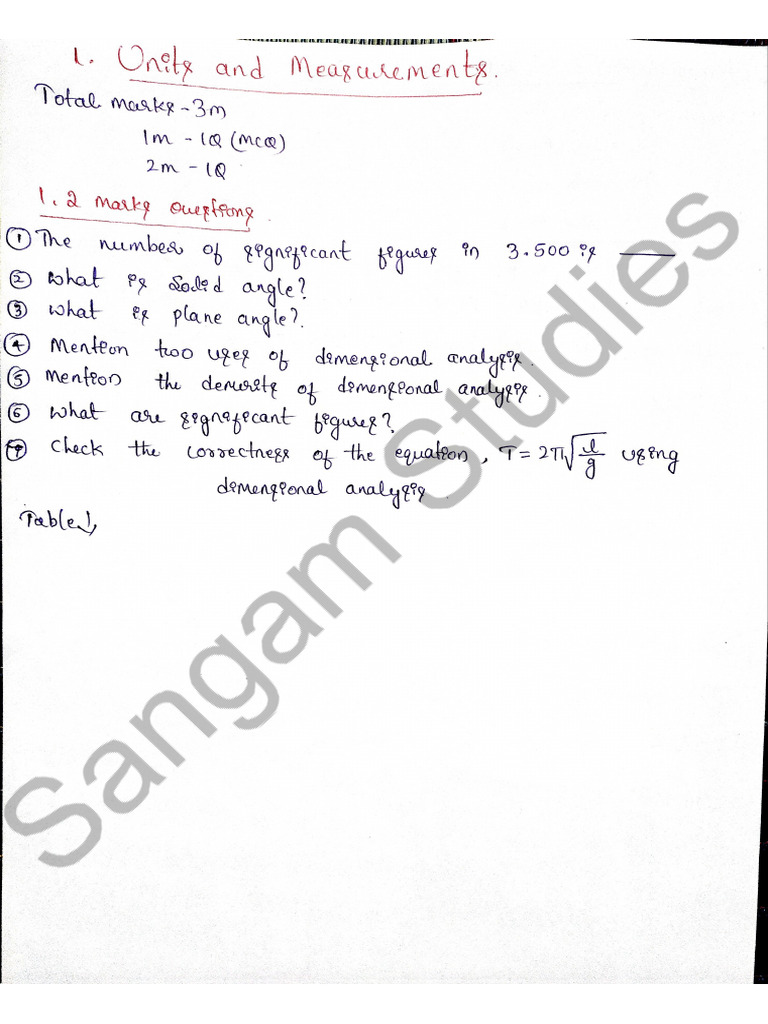 1. Units and Measurements.
Total marks - 3m
1m - 1Q (MCQ)
2m - 1Q
1. 2 marks questions.
① The number of significant figures in 3.500 is ______
② What is Solid angle?
③ What is plane angle?
④ Mention two uses of dimensional analysis.
⑤ Mention the demerits of dimensional analysis.
⑥ What are significant figures?
⑦ Check the correctness of the equation, T = 2π√(l/g) using
dimensional analysis.
Table 1,
Sangam Studies